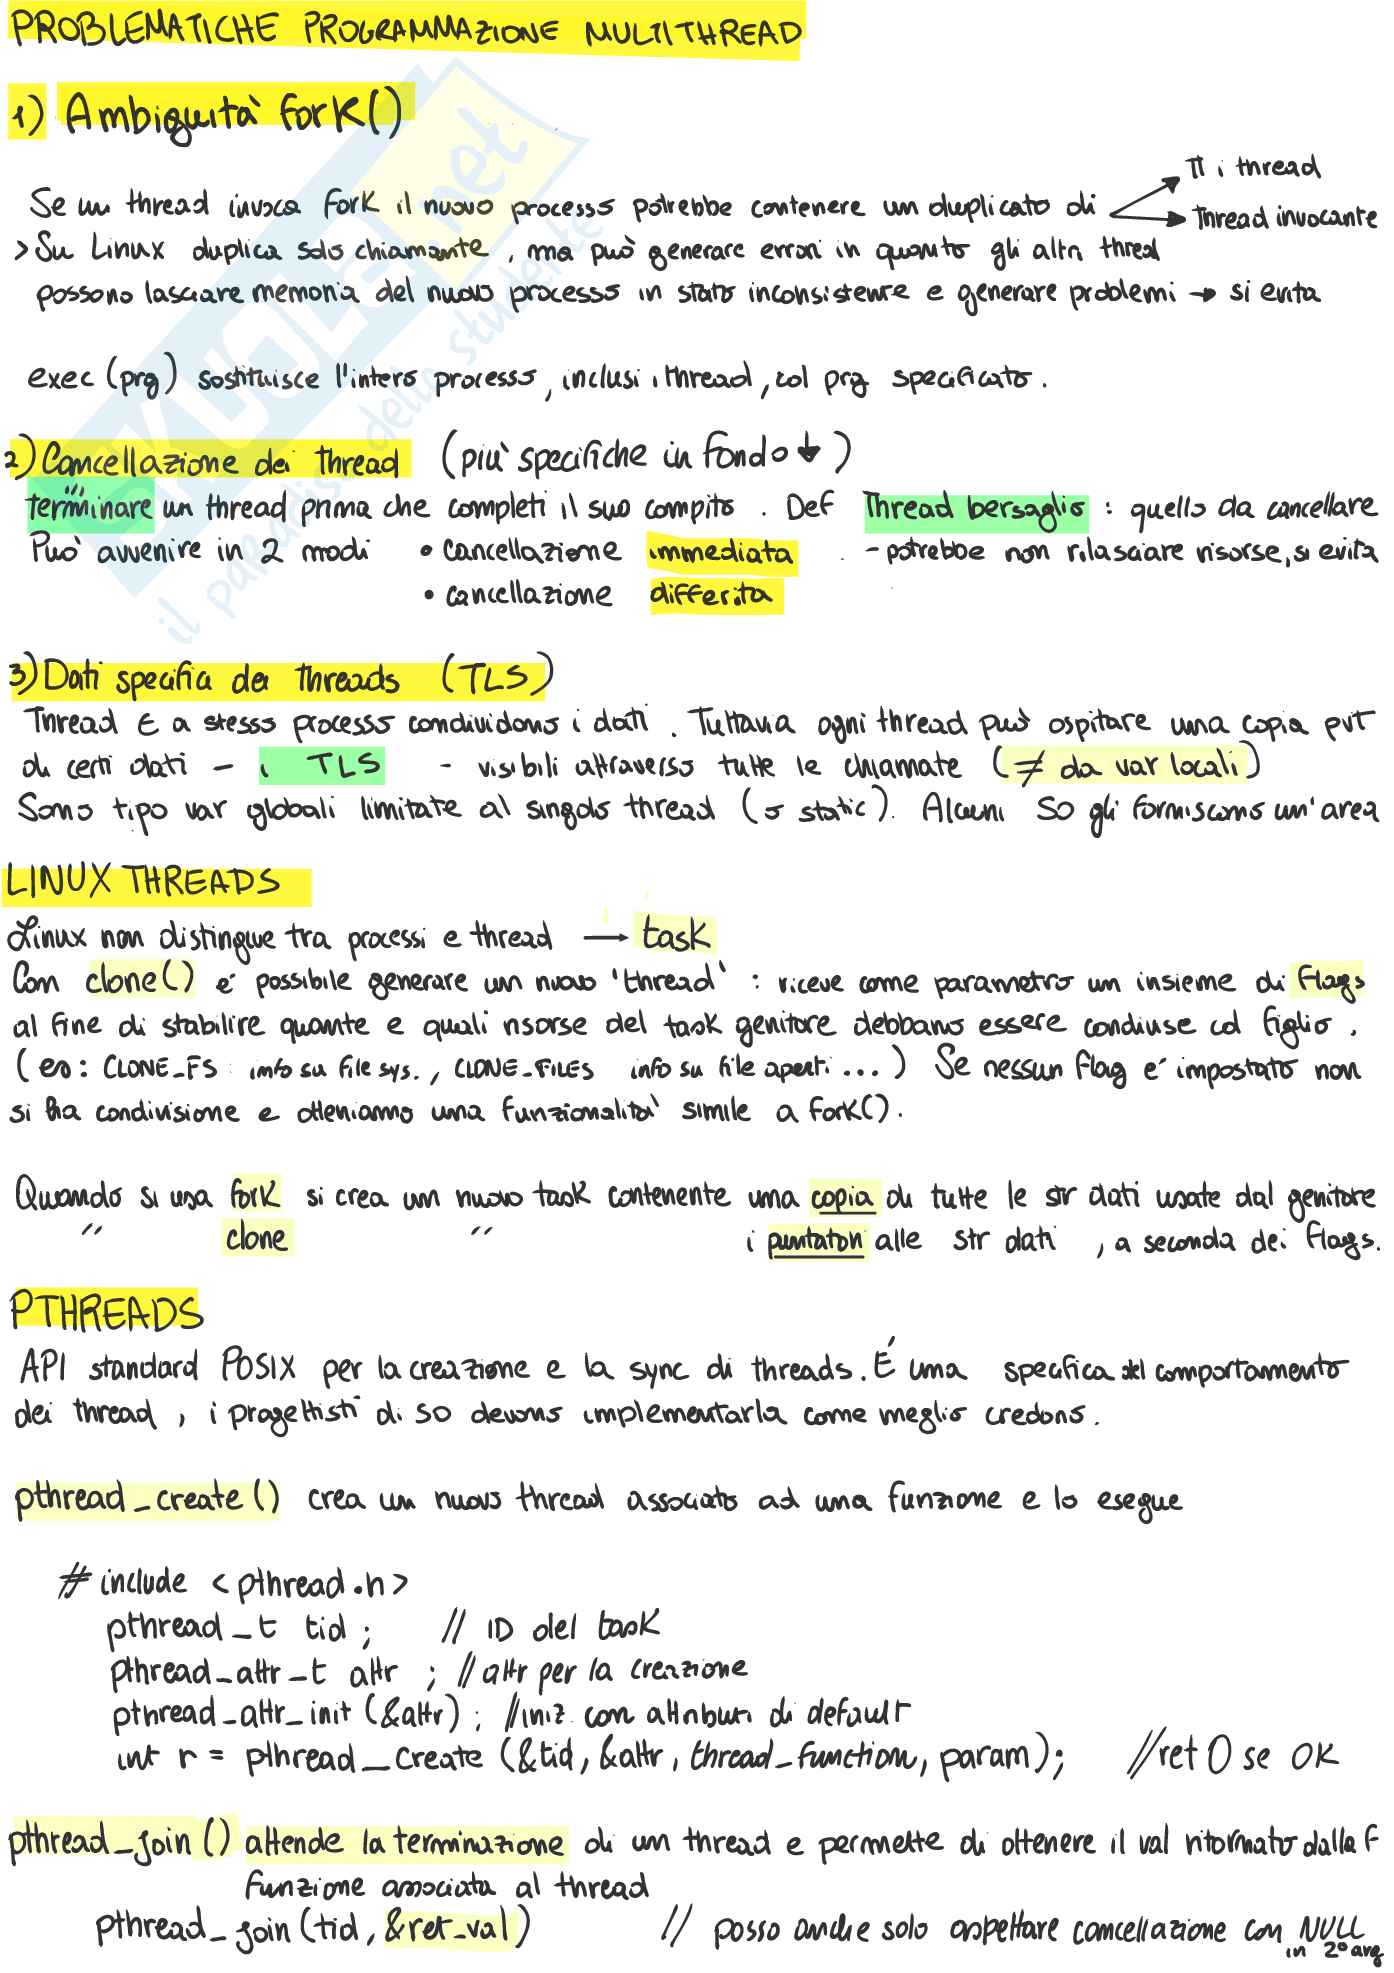 PROBLEMATICHE PROGRAMMAZIONE MULTITHREAD
1) Ambiguità fork()
π i thread
Se un thread invoca fork il nuovo processo potrebbe contenere un duplicato di
Thread invocante
> Su Linux duplica solo chiamante, ma può generare errori in quanto gli altri thread
possono lasciare memoria del nuovo processo in stato inconsistente e generare problemi → si evita
exec (prg) sostituisce l'intero processo, inclusi i thread, col prg specificato.
2) Cancellazione dei thread (più specifiche in fondo ↓)
terminare un thread prima che completi il suo compito. Def Thread bersaglio : quello da cancellare
Può avvenire in 2 modi • cancellazione immediata - potrebbe non rilasciare risorse, si evita
• cancellazione differita
3) Dati specifici dei threads (TLS)
Thread E a stesso processo condividono i dati. Tuttavia ogni thread può ospitare una copia pvt
di certi dati - i TLS - visibili attraverso tutte le chiamate (≠ da var locali)
Sono tipo var globali limitate al singolo thread (o static). Alcuni SO gli forniscono un'area
LINUX THREADS
Linux non distingue tra processi e thread → task
Con clone() è possibile generare un nuovo 'thread' : riceve come parametro un insieme di flags
al fine di stabilire quante e quali risorse del task genitore debbano essere condivise col figlio.
(es: CLONE_FS info su file sys., CLONE_FILES info su file aperti...) Se nessun flag è impostato non
si ha condivisione e otteniamo una funzionalità simile a fork().
Quando si usa fork si crea un nuovo task contenente una copia di tutte le str dati usate dal genitore
" clone " i puntatori alle str dati, a seconda dei flags.
PTHREADS
API standard POSIX per la creazione e la sync di threads. È una specifica del comportamento
dei thread, i progettisti di SO devono implementarla come meglio credono.
pthread_create() crea un nuovo thread associato ad una funzione e lo esegue
# include <pthread.h>
pthread_t tid; // ID del task
pthread_attr_t attr; // attr per la creazione
pthread_attr_init (&attr); // iniz con attributi di default
int r = pthread_create (&tid, &attr, thread_function, param); // ret 0 se OK
pthread_join() attende la terminazione di un thread e permette di ottenere il val ritornato dalla f
funzione associata al thread
pthread_join(tid, &ret_val) // posso anche solo aspettare cancellazione con NULL
in 2° arg
SKUOLA.net
il paradiso dello studente